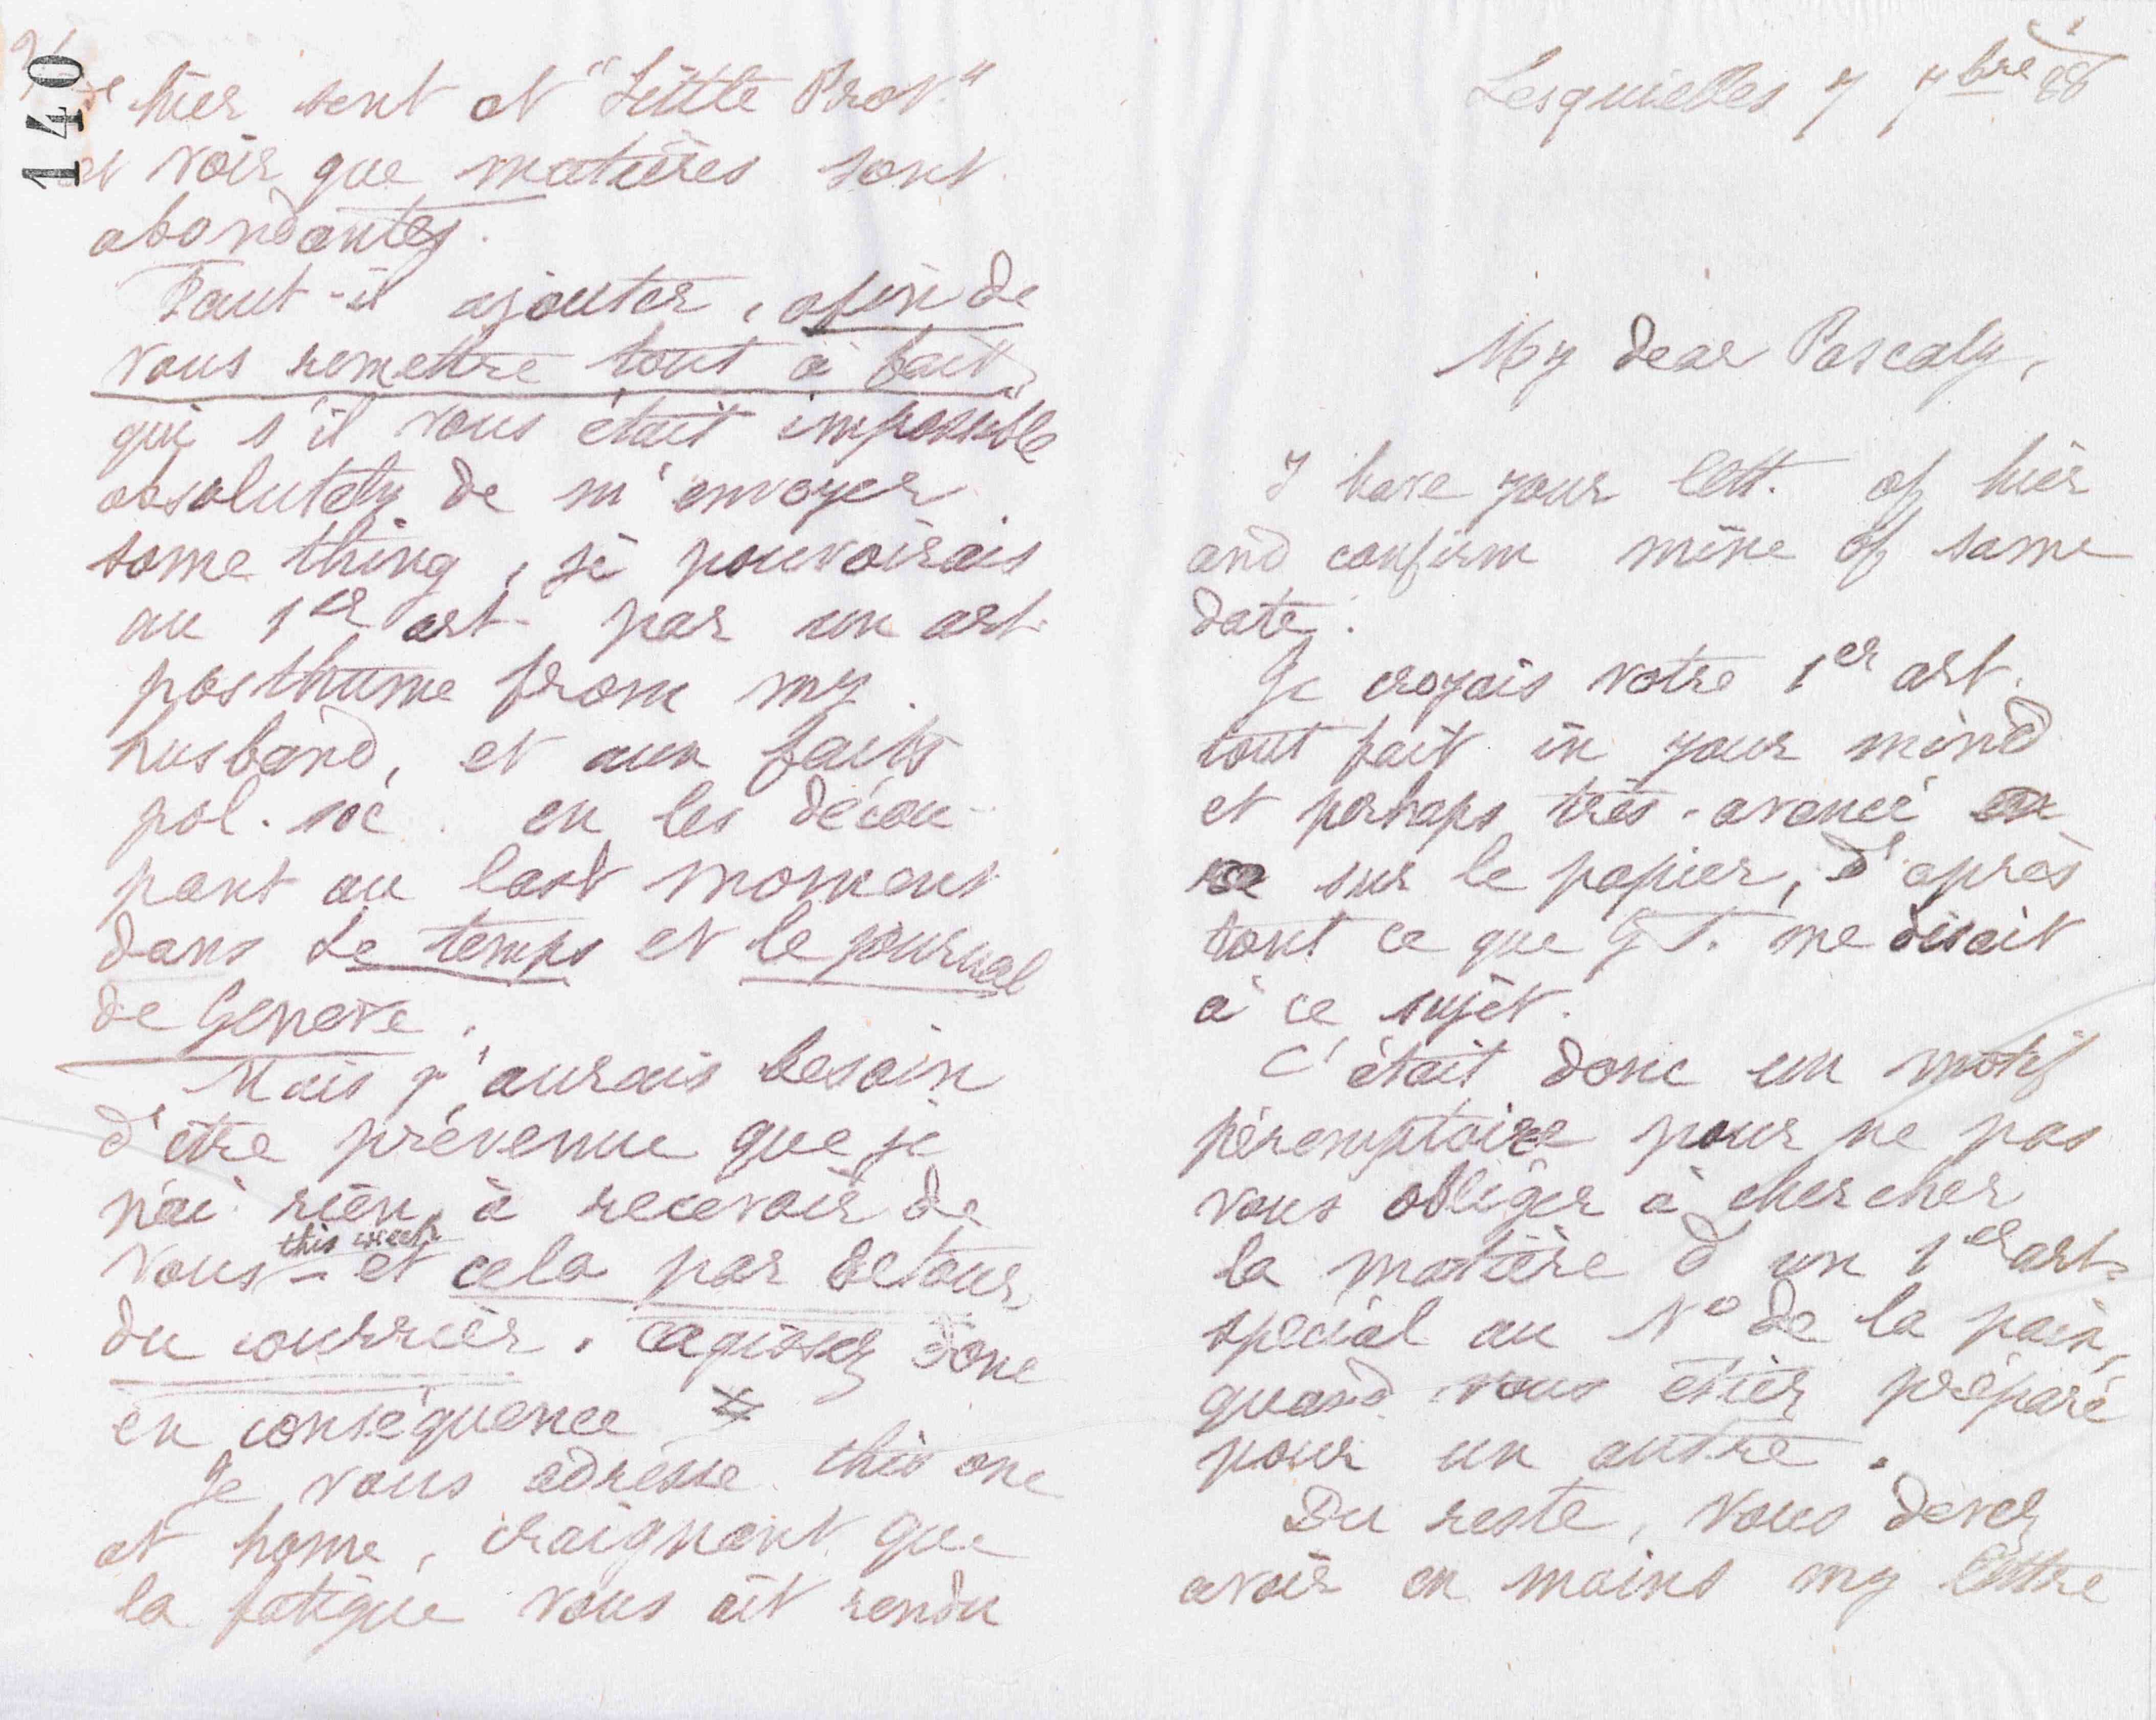 Lesquielles 7 7bre 88
My dear Pascaly,
I have your lett. of hier
and confirm mine of same
date.
Je croyais votre 1er art.
tout fait in your mind
et perhaps très-avancé
sur le papier, d'après
tout ce que G T. me disait
à ce sujet.
C'était donc un motif
péremptoire pour ne pas
vous obliger à chercher
la matière d'un 1er art.
spécial au No de la paix,
quand vous étiez préparé
pour un autre.
Du reste, vous devez
avoir en mains my lettre
140
hier sent at "Little Prov."
et voir que matières sont
abondantes.
Faut-il ajouter, afin de
vous remettre tout à fait,
qui s'il vous était impossible
absolutely de m'envoyer
some thing, je pouvoirais
au 1er art. par un art.
posthume from my
husband, et aux faits
pol. soc. en les décou-
pant au last moment
dans Le temps et le journal
de Geneve.
Mais j'aurais besoin
d'être prévenue que je
n'ai rien à recevoir de
vous this week - et cela par retour
du courrier. agissez donc
en conséquence
Je vous adresse this one
at home, craignant que
la fatigue vous ait rendu